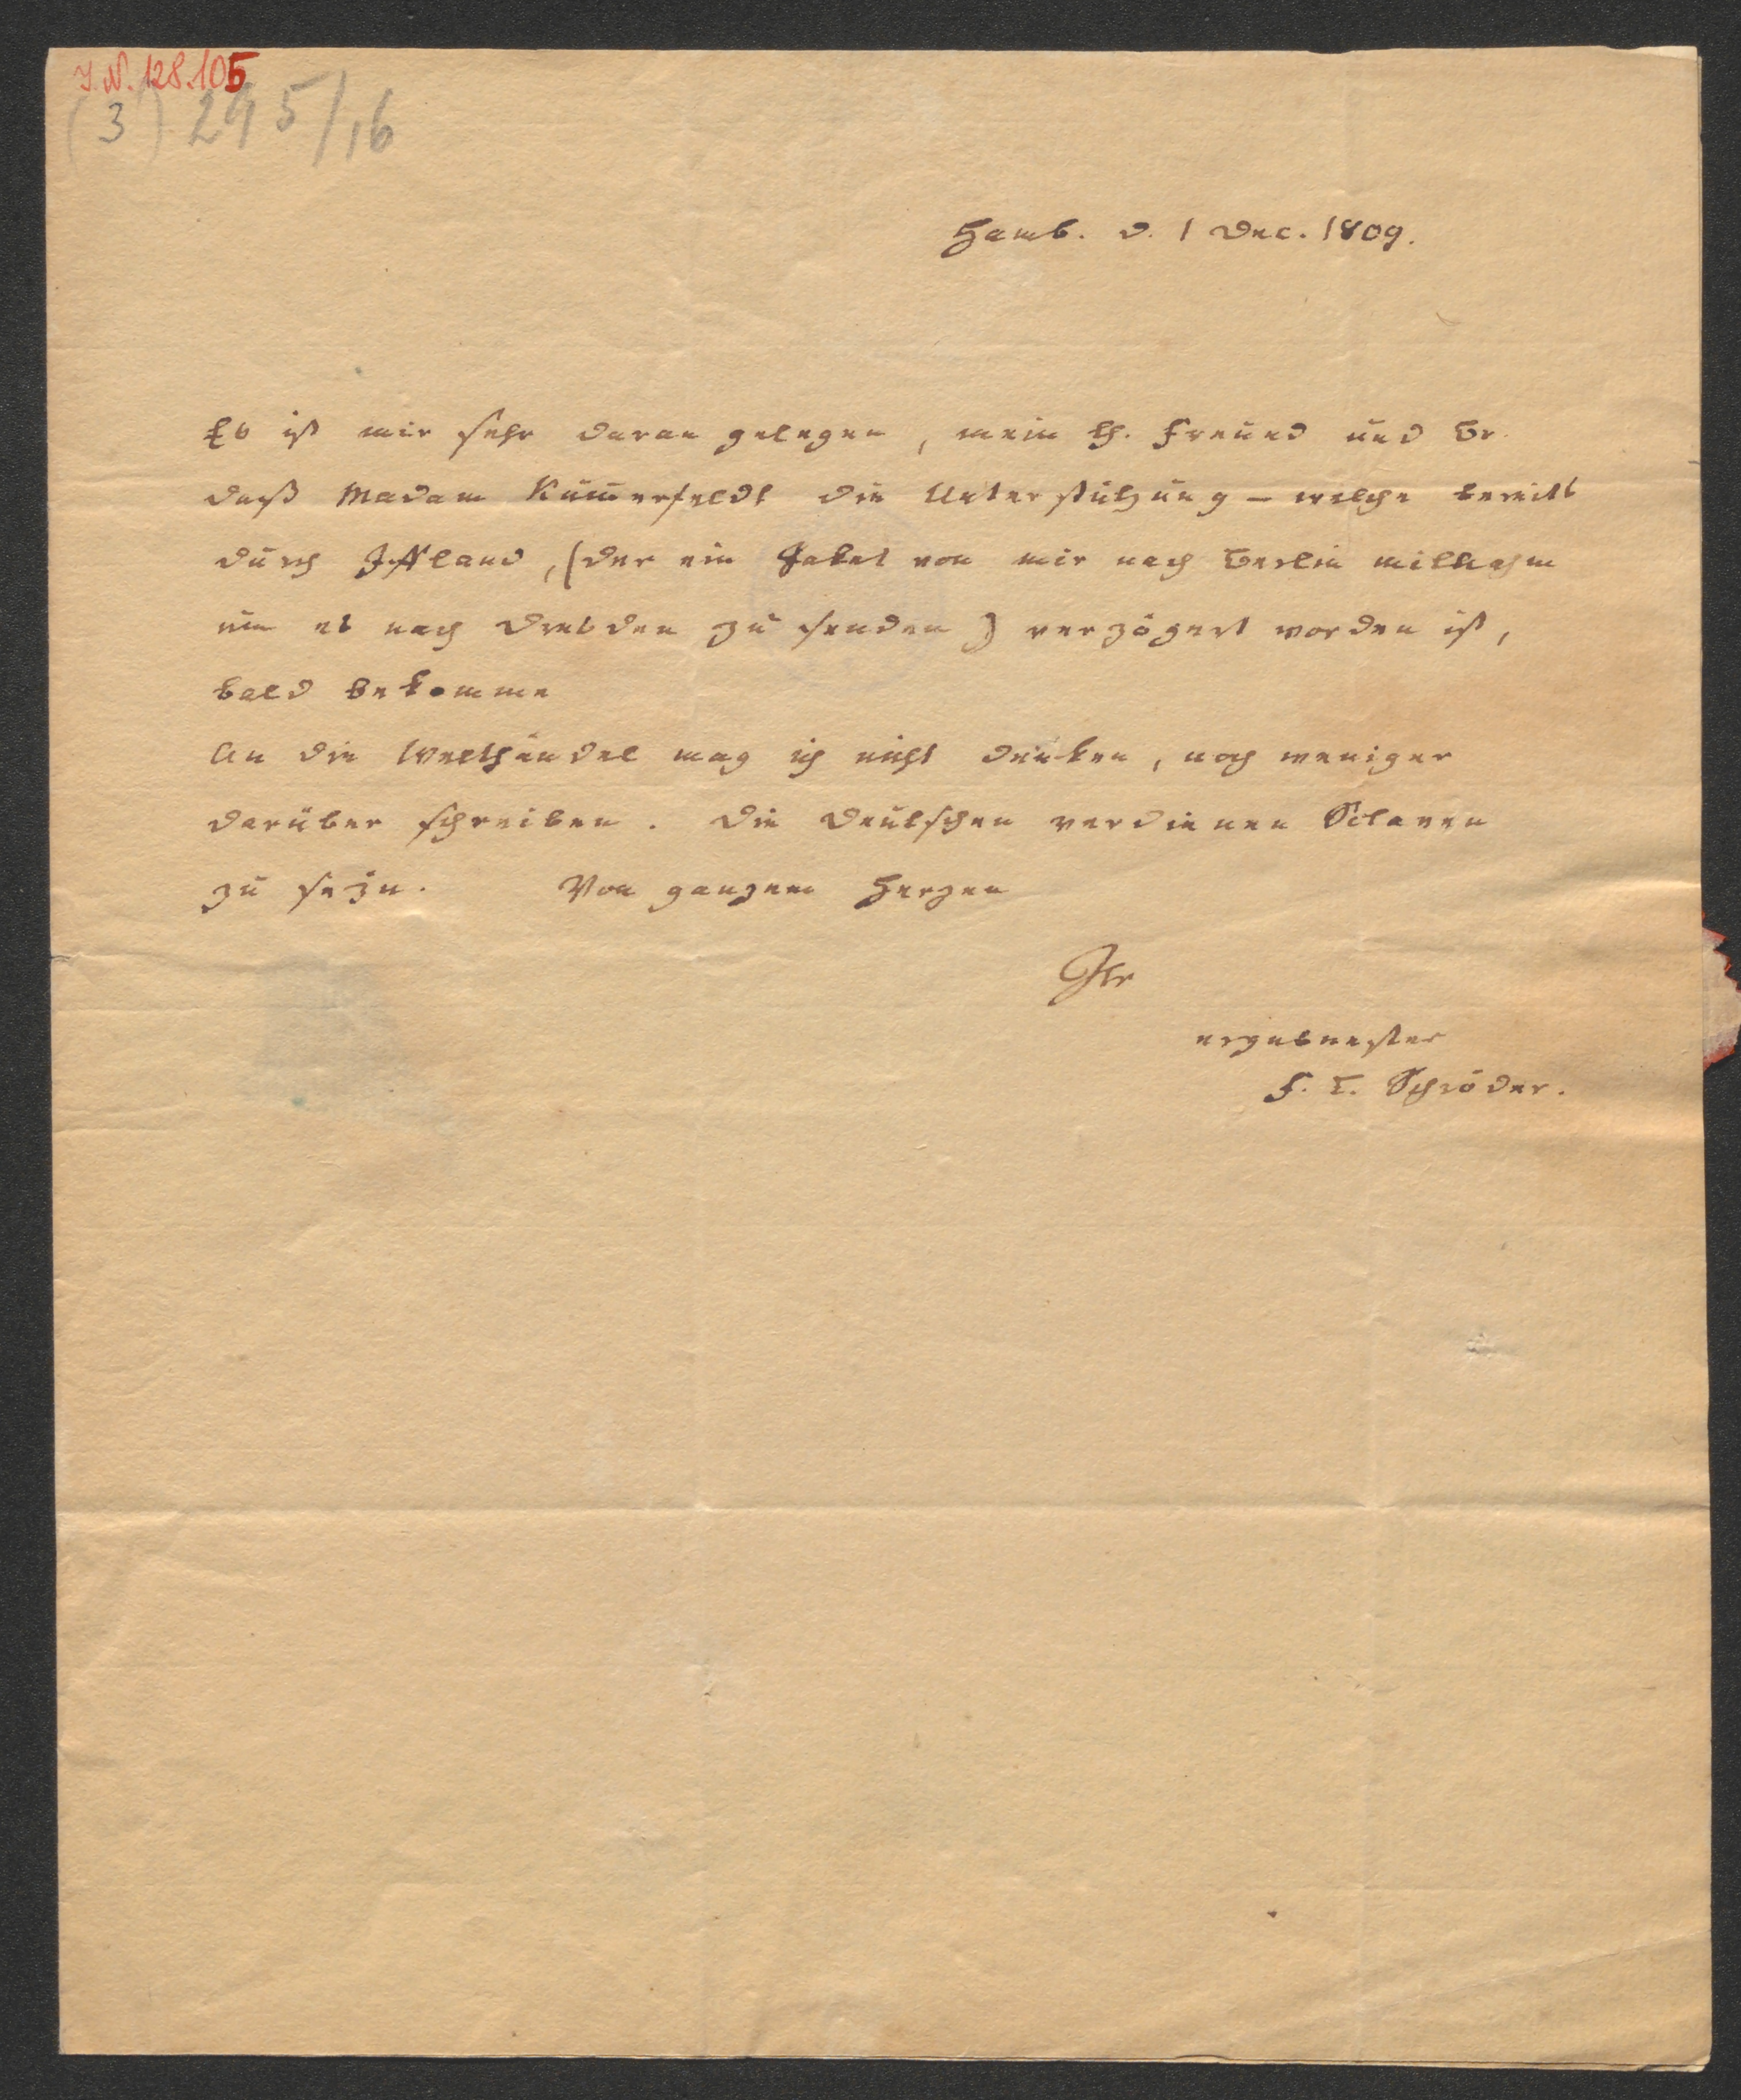 J.N. 128.105
(3) 295/16
Hamb. d. 1 Dec. 1809.
Es ist mir sehr daran gelegen, mein th. Freund und Br.
daß Madam Kum̄erfeldt die Unterstützung – welche bereits
durch Iffland, (der ein Paket von mir nach Berlin mitnahm
um es nach Dresden zu senden) verzögert worden ist,
bald bekomme
An die Welthändel mag ich nicht denken, noch weniger
darüber schreiben. Die Deutschen verdienen Sclaven
zu seÿn. Von ganzem Herzen
Ihr
ergebenster
F. L. Schröder.